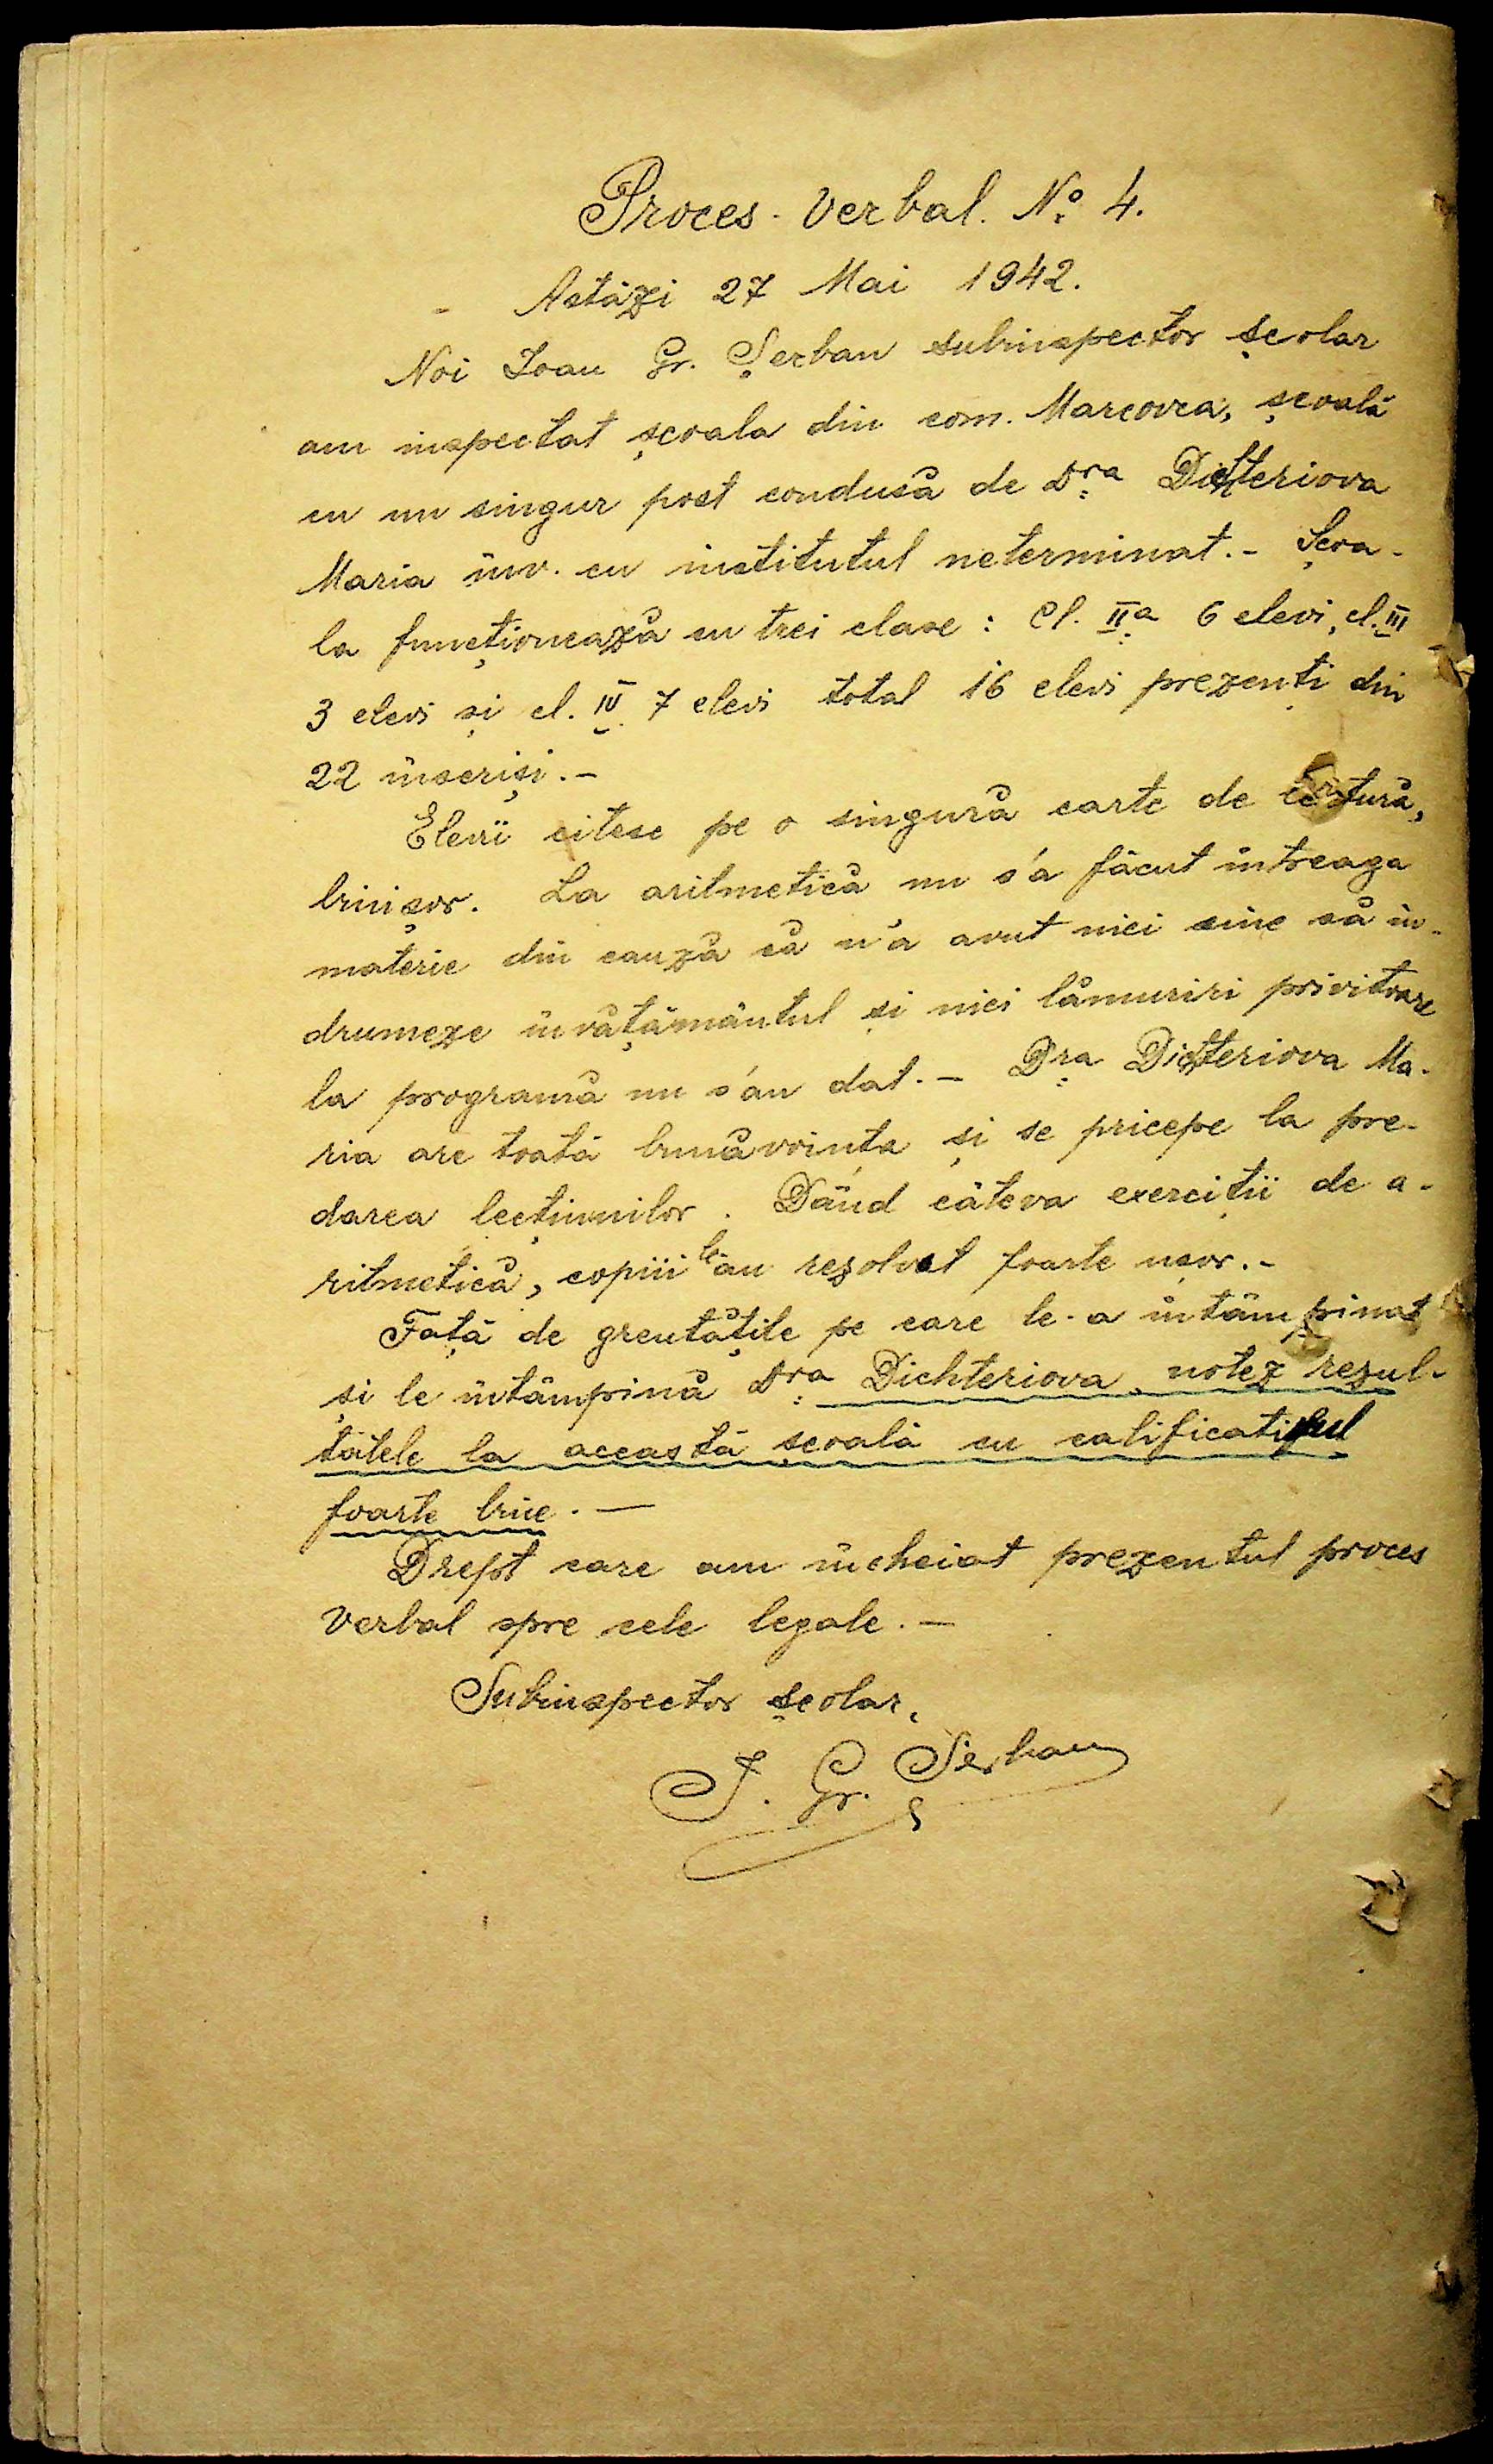 Proces-Verbal. Nº 4.
Astăzi 27 Mai 1942.
Noi Ioan Gr. Șerban subinspector școlar
am inspectat școala din com. Marcovca, școală
cu un singur post condusă de Dra Dichteriova
Maria înv. cu institutul neterminat.- Școa-
la funcționează cu trei clase: Cl. IIa 6 elevi, cl. III
3 elevi și cl. IV 7 elevi total 16 elevi prezenți din
22 înscriși.-
Elevii citesc pe o singură carte de lectură,
binișor. La aritmetică nu s'a făcut întreaga
materie din cauză că n'a avut nici cine să în-
drumeze învățământul și nici lămuriri privitoare
la programă nu s'au dat.- Dra Dichteriova Ma-
ria are toată bunăvoința și se pricepe la pre-
darea lecțiunilor. Dând câteva exerciții de a-
ritmetică, copiii le-au rezolvat foarte ușor.-
Față de greutățile pe care le-a întâmpinat
și le întâmpină Dra Dichteriova, notez rezul-
tatele la această școală cu calificativul
foarte bine.-
Drept care am încheiat prezentul proces
verbal spre cele legale.-
Subinspector școlar,
I. Gr. Șerban